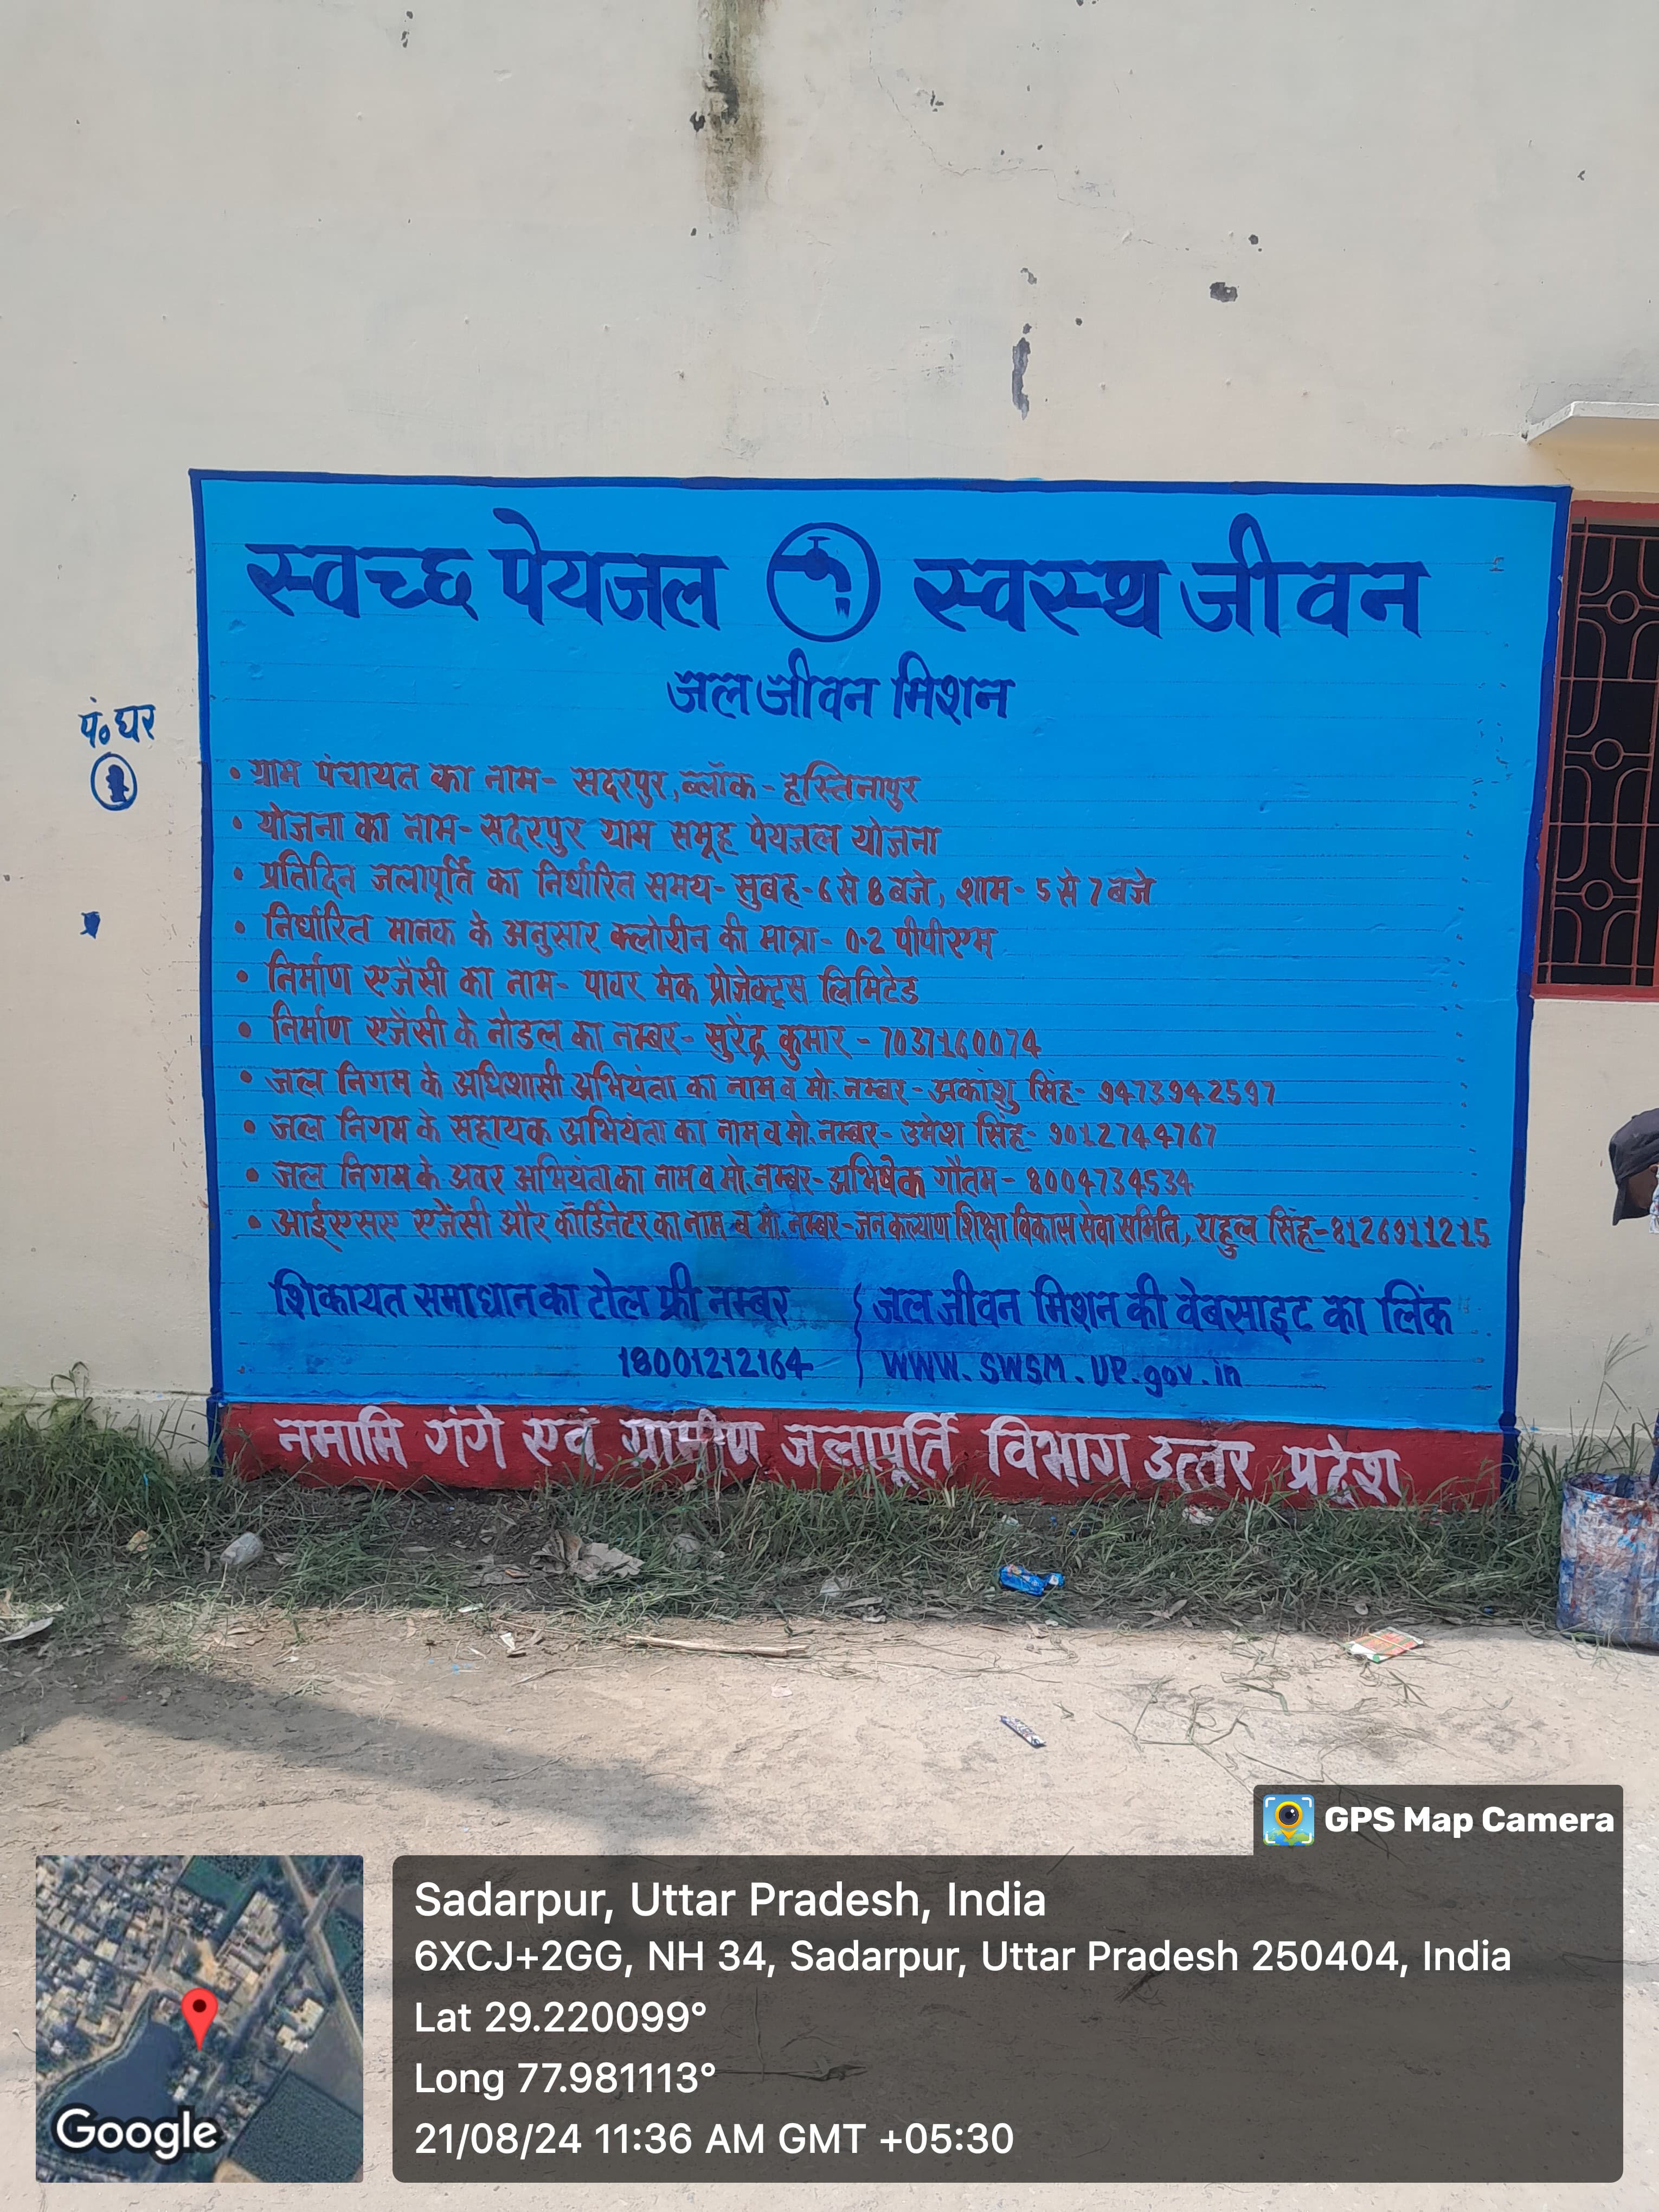 स्वच्छ पेयजल स्वस्थ जीवन
जल जीवन मिशन
पं॰घर
• ग्राम पंचायत का नाम- सदरपुर, ब्लॉक- हस्तिनापुर
• योजना का नाम- सदरपुर ग्राम समूह पेयजल योजना
• प्रतिदिन जलापूर्ति का निर्धारित समय- सुबह- 6 से 8 बजे, शाम- 5 से 7 बजे
• निर्धारित मानक के अनुसार क्लोरीन की मात्रा- 0.2 पीपीएम
• निर्माण एजेंसी का नाम- पावर मेक प्रोजेक्ट्स लिमिटेड
• निर्माण एजेंसी के नोडल का नम्बर- सुरेंद्र कुमार - 7037160074
• जल निगम के अधिशासी अभियंता का नाम व मो. नम्बर- अकांशु सिंह- 9473942597
• जल निगम के सहायक अभियंता का नाम व मो. नम्बर- उमेश सिंह- 9012744767
• जल निगम के अवर अभियंता का नाम व मो. नम्बर- अभिषेक गौतम - 8004734534
• आईएसए एजेंसी और कॉर्डिनेटर का नाम व मो. नम्बर- जन कल्याण शिक्षा विकास सेवा समिति, राहुल सिंह- 8126911215
शिकायत समाधान का टोल फ्री नम्बर
18001212164
जल जीवन मिशन की वेबसाइट का लिंक
WWW.SWSM.UP.gov.in
नमामि गंगे एवं ग्रामीण जलापूर्ति विभाग उत्तर प्रदेश
GPS Map Camera
Sadarpur, Uttar Pradesh, India
6XCJ+2GG, NH 34, Sadarpur, Uttar Pradesh 250404, India
Lat 29.220099°
Long 77.981113°
21/08/24 11:36 AM GMT +05:30
Google